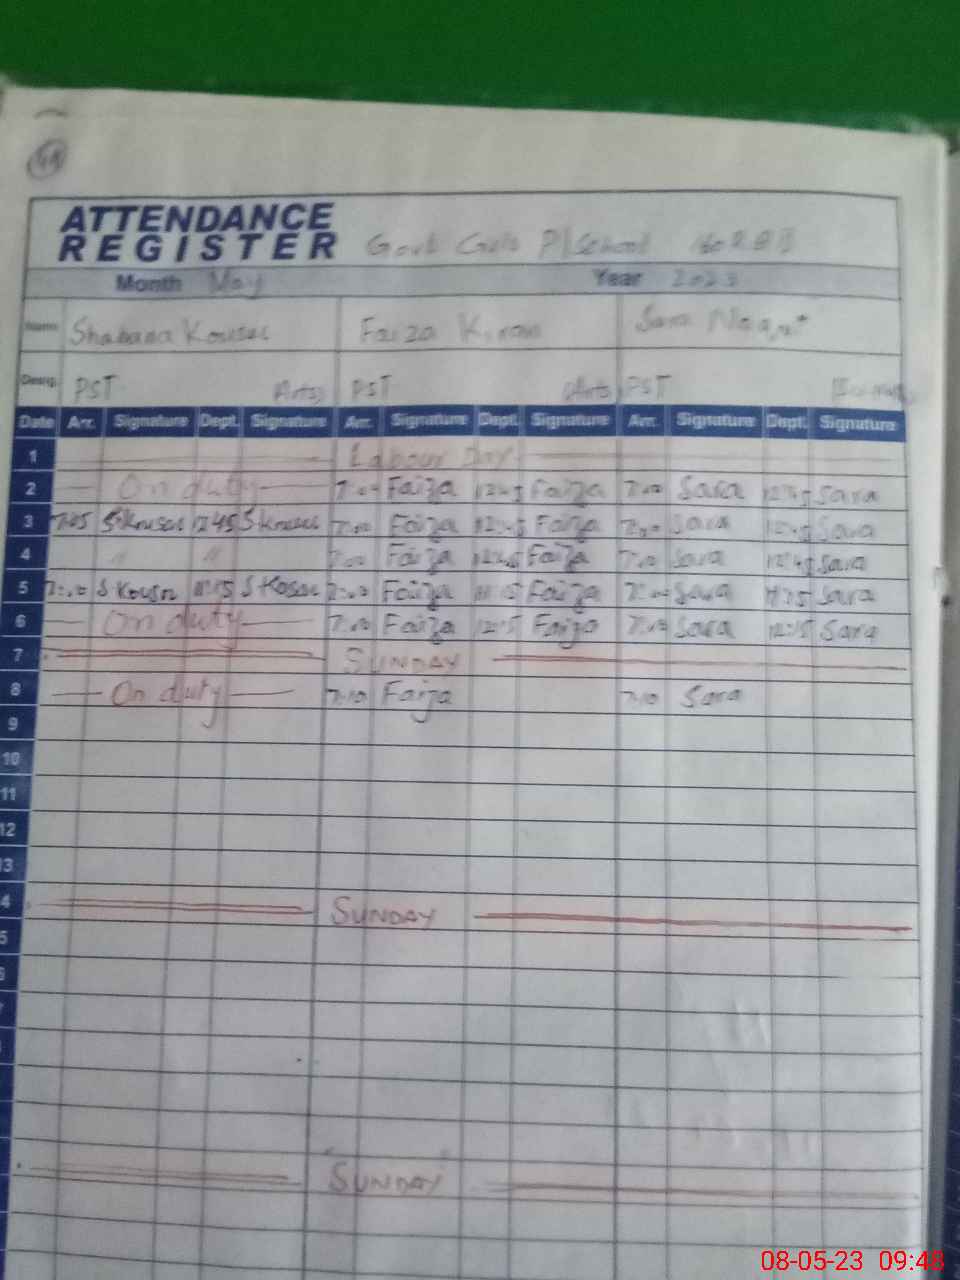 49
ATTENDANCE
REGISTER Govt Girls P/School
Month May Year 2023
Name Shabana Kousar Faiza Kiran Sara
Desig. PST (Arts) PST (Arts) PST
Date Arr. Signature Dept. Signature Arr. Signature Dept. Signature Arr. Signature Dept. Signature
1 Labour Day
2 On duty 7:00 Faiza 12:45 Faiza 7:00 Sara 12:45 Sara
3 7:05 S.Kousar 12:45 S Kousar 7:00 Faiza 12:45 Faiza 7:00 Sara 12:45 Sara
4 " " 7:00 Faiza 12:45 Faiza 7:00 Sara 12:45 Sara
5 7:00 S Kousar 11:15 S Kousar 7:00 Faiza 11:15 Faiza 7:00 Sara 11:15 Sara
6 On duty 7:00 Faiza 12:15 Faiza 7:00 Sara 12:15 Sara
7 SUNDAY
8 On duty 7:10 Faiza 7:10 Sara
9
10
11
12
13
4 SUNDAY
5
6
"SUNDAY"
08-05-23 09:48